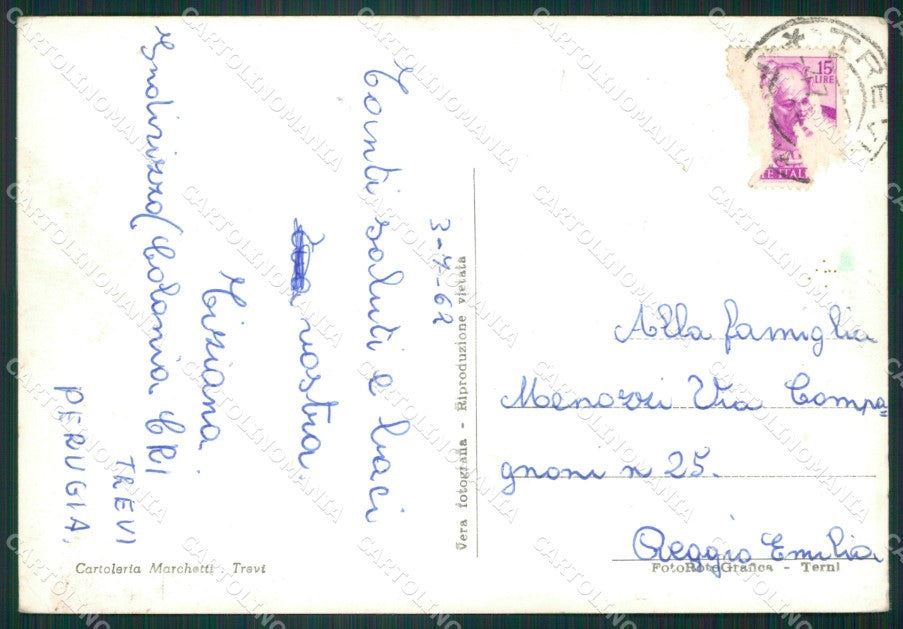 3-7-62
Tanti saluti e baci
vostra.
Tiziana
Indirizzo (Colonia CRI
TREVI
PERUGIA.
Cartoleria Marchetti . Trevi
Vera fotografia - Riproduzione vietata
15
LIRE
TE ITAL
TREVI
Alla famiglia
Menozzi Via Compa
gnoni n 25.
Reggio Emilia
FotoRotoGrafica - Terni
CARTOLINOMANIA